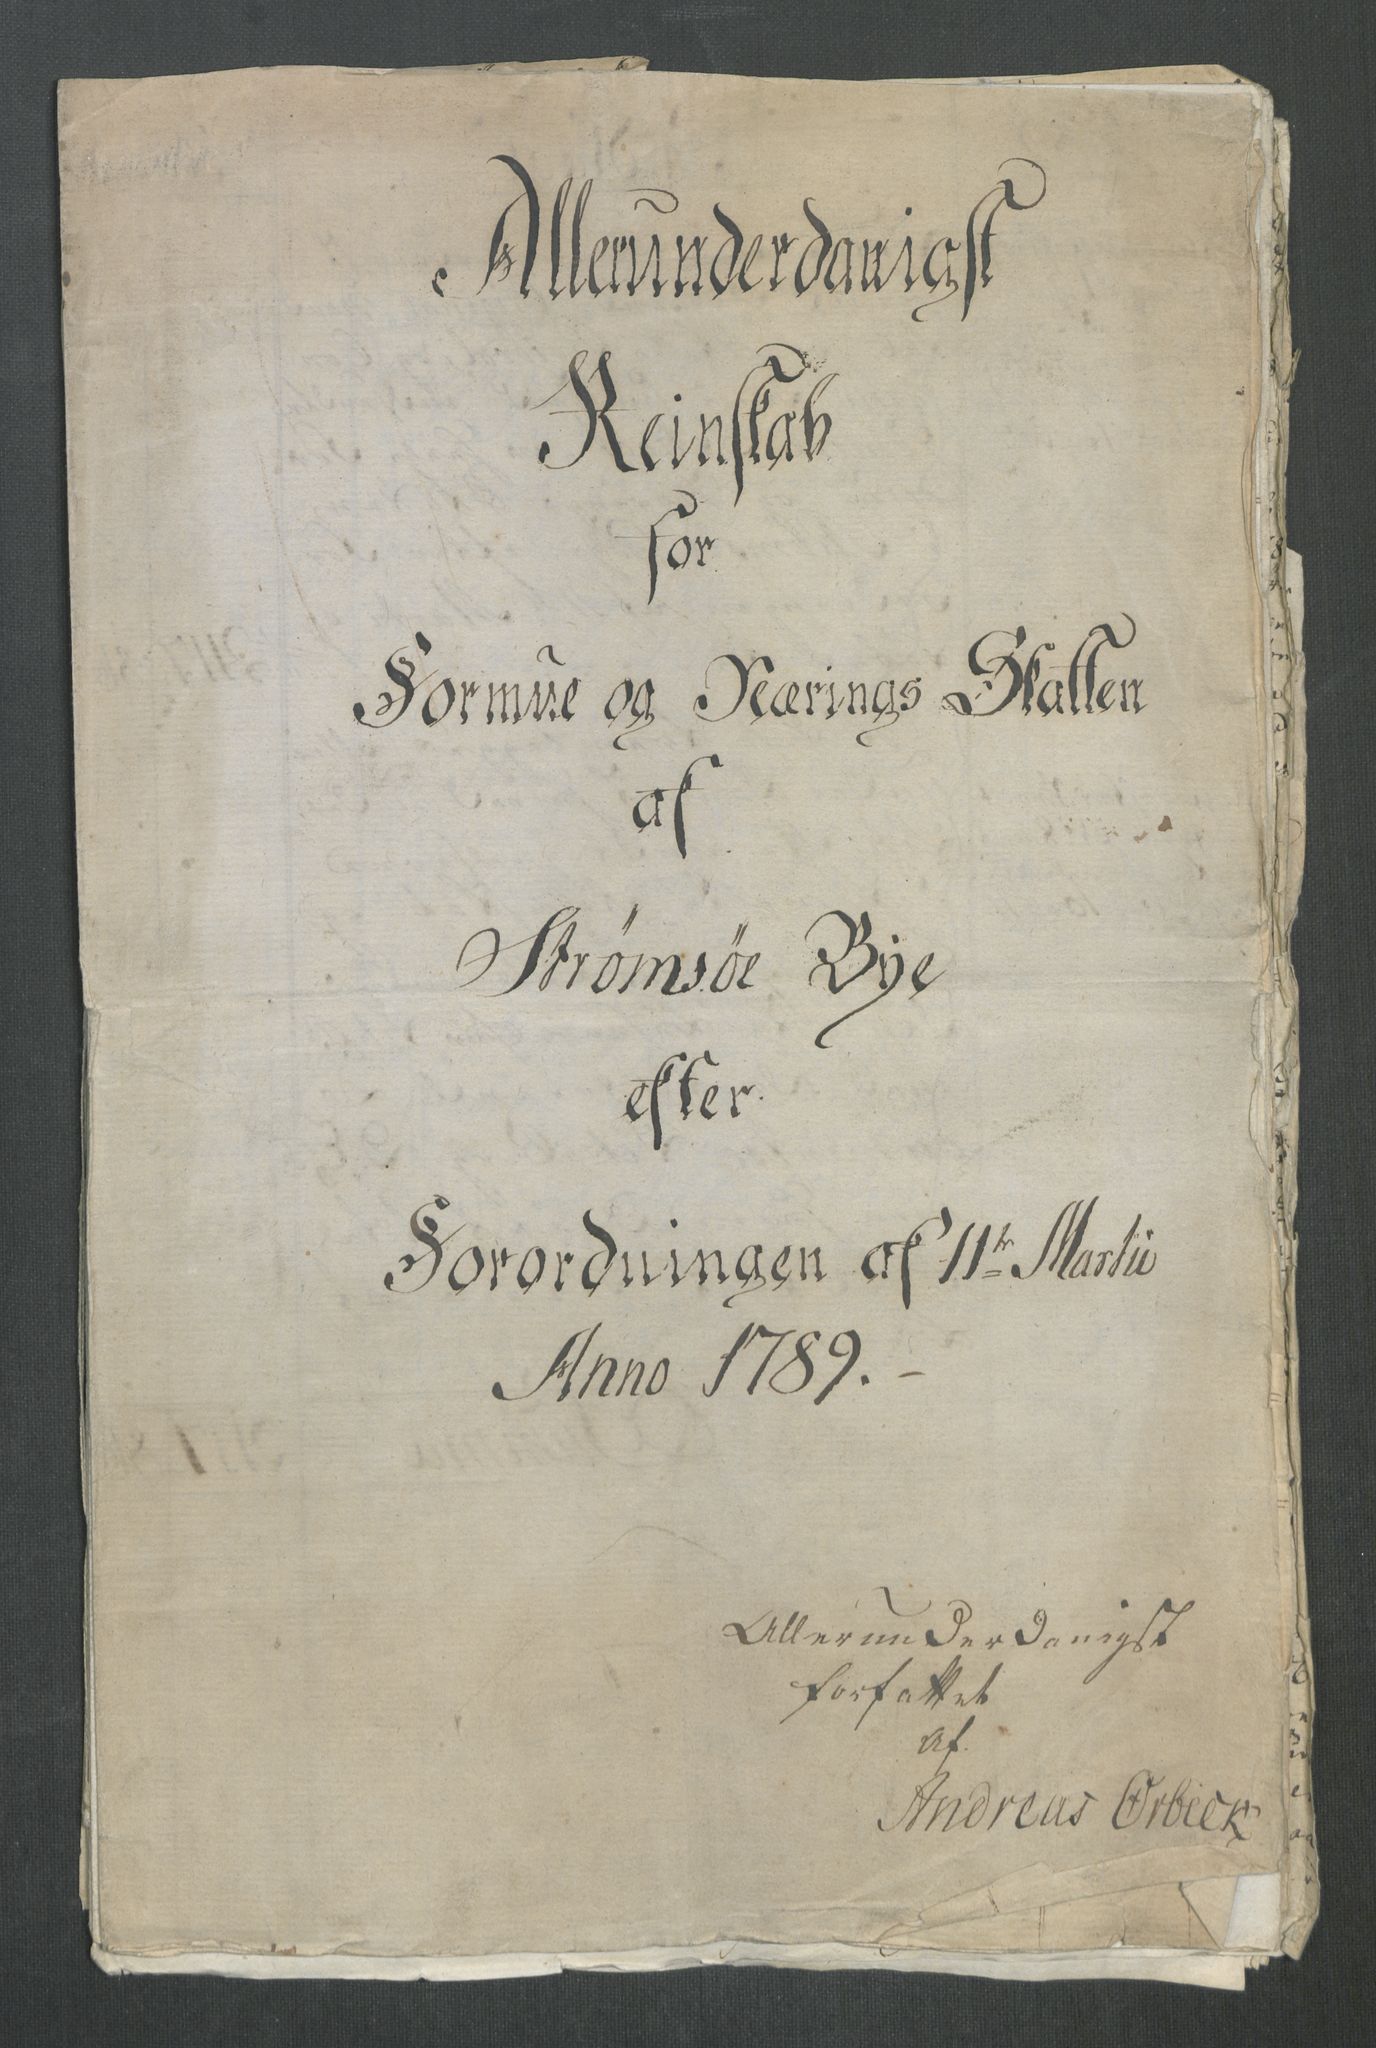 Allerunderdanigst
Reinskab
for
Formue og Nærings Skatten
af
Strømsöe Bye
efter
Forordningen af 11te Martii
Anno 1789. -
Allerunderdanigst
forfattet
af
Andreas Ørbeck